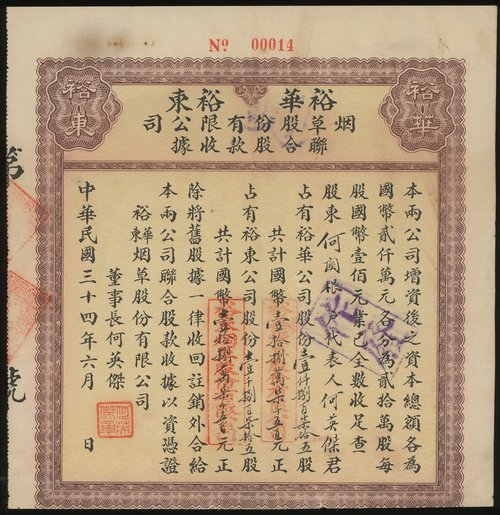 № 00014
裕華
裕東
裕華 裕東
烟草股份有限公司
聯合股款收據
本兩公司增資後之資本總額各為
國幣貳仟萬元各分為貳拾萬股每
股國幣壹佰元業已全數收足查
股東何 代表人何英傑君
占有裕華公司股份壹仟捌百柒拾五股
共計國幣壹拾捌萬柒千五百元正
占有裕東公司股份壹千捌百柒拾五股
共計國幣壹拾捌萬柒千五百元正
除將舊股據一律收回註銷外合給
本兩公司聯合股款收據以資憑證
裕華東烟草股份有限公司
董事長何英傑
中華民國三十四年六月 日
第 號